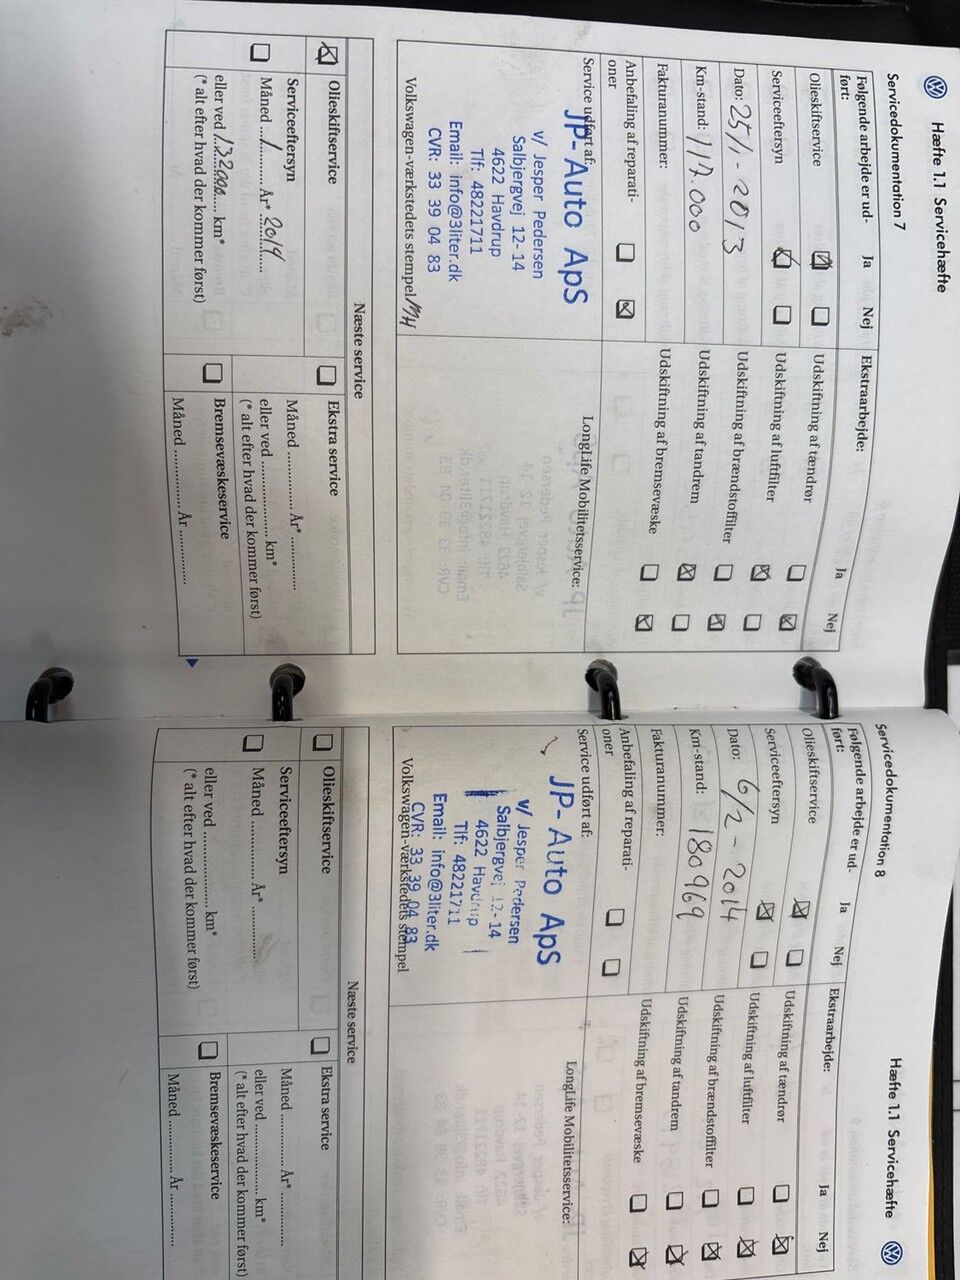 Hæfte 1.1 Servicehæfte
Servicedokumentation 7
Følgende arbejde er ud-
ført:
Ja
Nej
Ekstraarbejde:
Ja
Nej
Olieskiftservice
Udskiftning af tændrør
Serviceeftersyn
Udskiftning af luftfilter
Dato: 25/1-2013
Udskiftning af brændstoffilter
Km-stand: 117.000
Udskiftning af tandrem
Fakturanummer:
Udskiftning af bremsevæske
Anbefaling af reparati-
oner
Service udført af:
LongLife Mobilitetsservice:
JP-Auto ApS
v/ Jesper Pedersen
Salbjergvej 12-14
4622 Havdrup
Tlf: 48221711
Email: info@3liter.dk
CVR: 33 39 04 83
Volkswagen-værkstedets stempel
Næste service
Olieskiftservice
Serviceeftersyn
Måned 1 År* 2014
eller ved 132000 km*
(* alt efter hvad der kommer først)
Ekstra service
Måned ............ År* ............
eller ved .................. km*
(* alt efter hvad der kommer først)
Bremsevæskeservice
Måned ............ År ............
Hæfte 1.1 Servicehæfte
Servicedokumentation 8
Følgende arbejde er ud-
ført:
Ja
Nej
Ekstraarbejde:
Ja
Nej
Olieskiftservice
Udskiftning af tændrør
Serviceeftersyn
Udskiftning af luftfilter
Dato: 6/2-2014
Udskiftning af brændstoffilter
Km-stand: 180969
Udskiftning af tandrem
Fakturanummer:
Udskiftning af bremsevæske
Anbefaling af reparati-
oner
Service udført af:
LongLife Mobilitetsservice:
JP-Auto ApS
v/ Jesper Pedersen
Salbjergvej 12-14
4622 Havdrup
Tlf: 48221711
Email: info@3liter.dk
CVR: 33 39 04 83
Volkswagen-værkstedets stempel
Næste service
Olieskiftservice
Serviceeftersyn
Måned ............ År* ............
eller ved .................. km*
(* alt efter hvad der kommer først)
Ekstra service
Måned ............ År* ............
eller ved .................. km*
(* alt efter hvad der kommer først)
Bremsevæskeservice
Måned ............ År ............